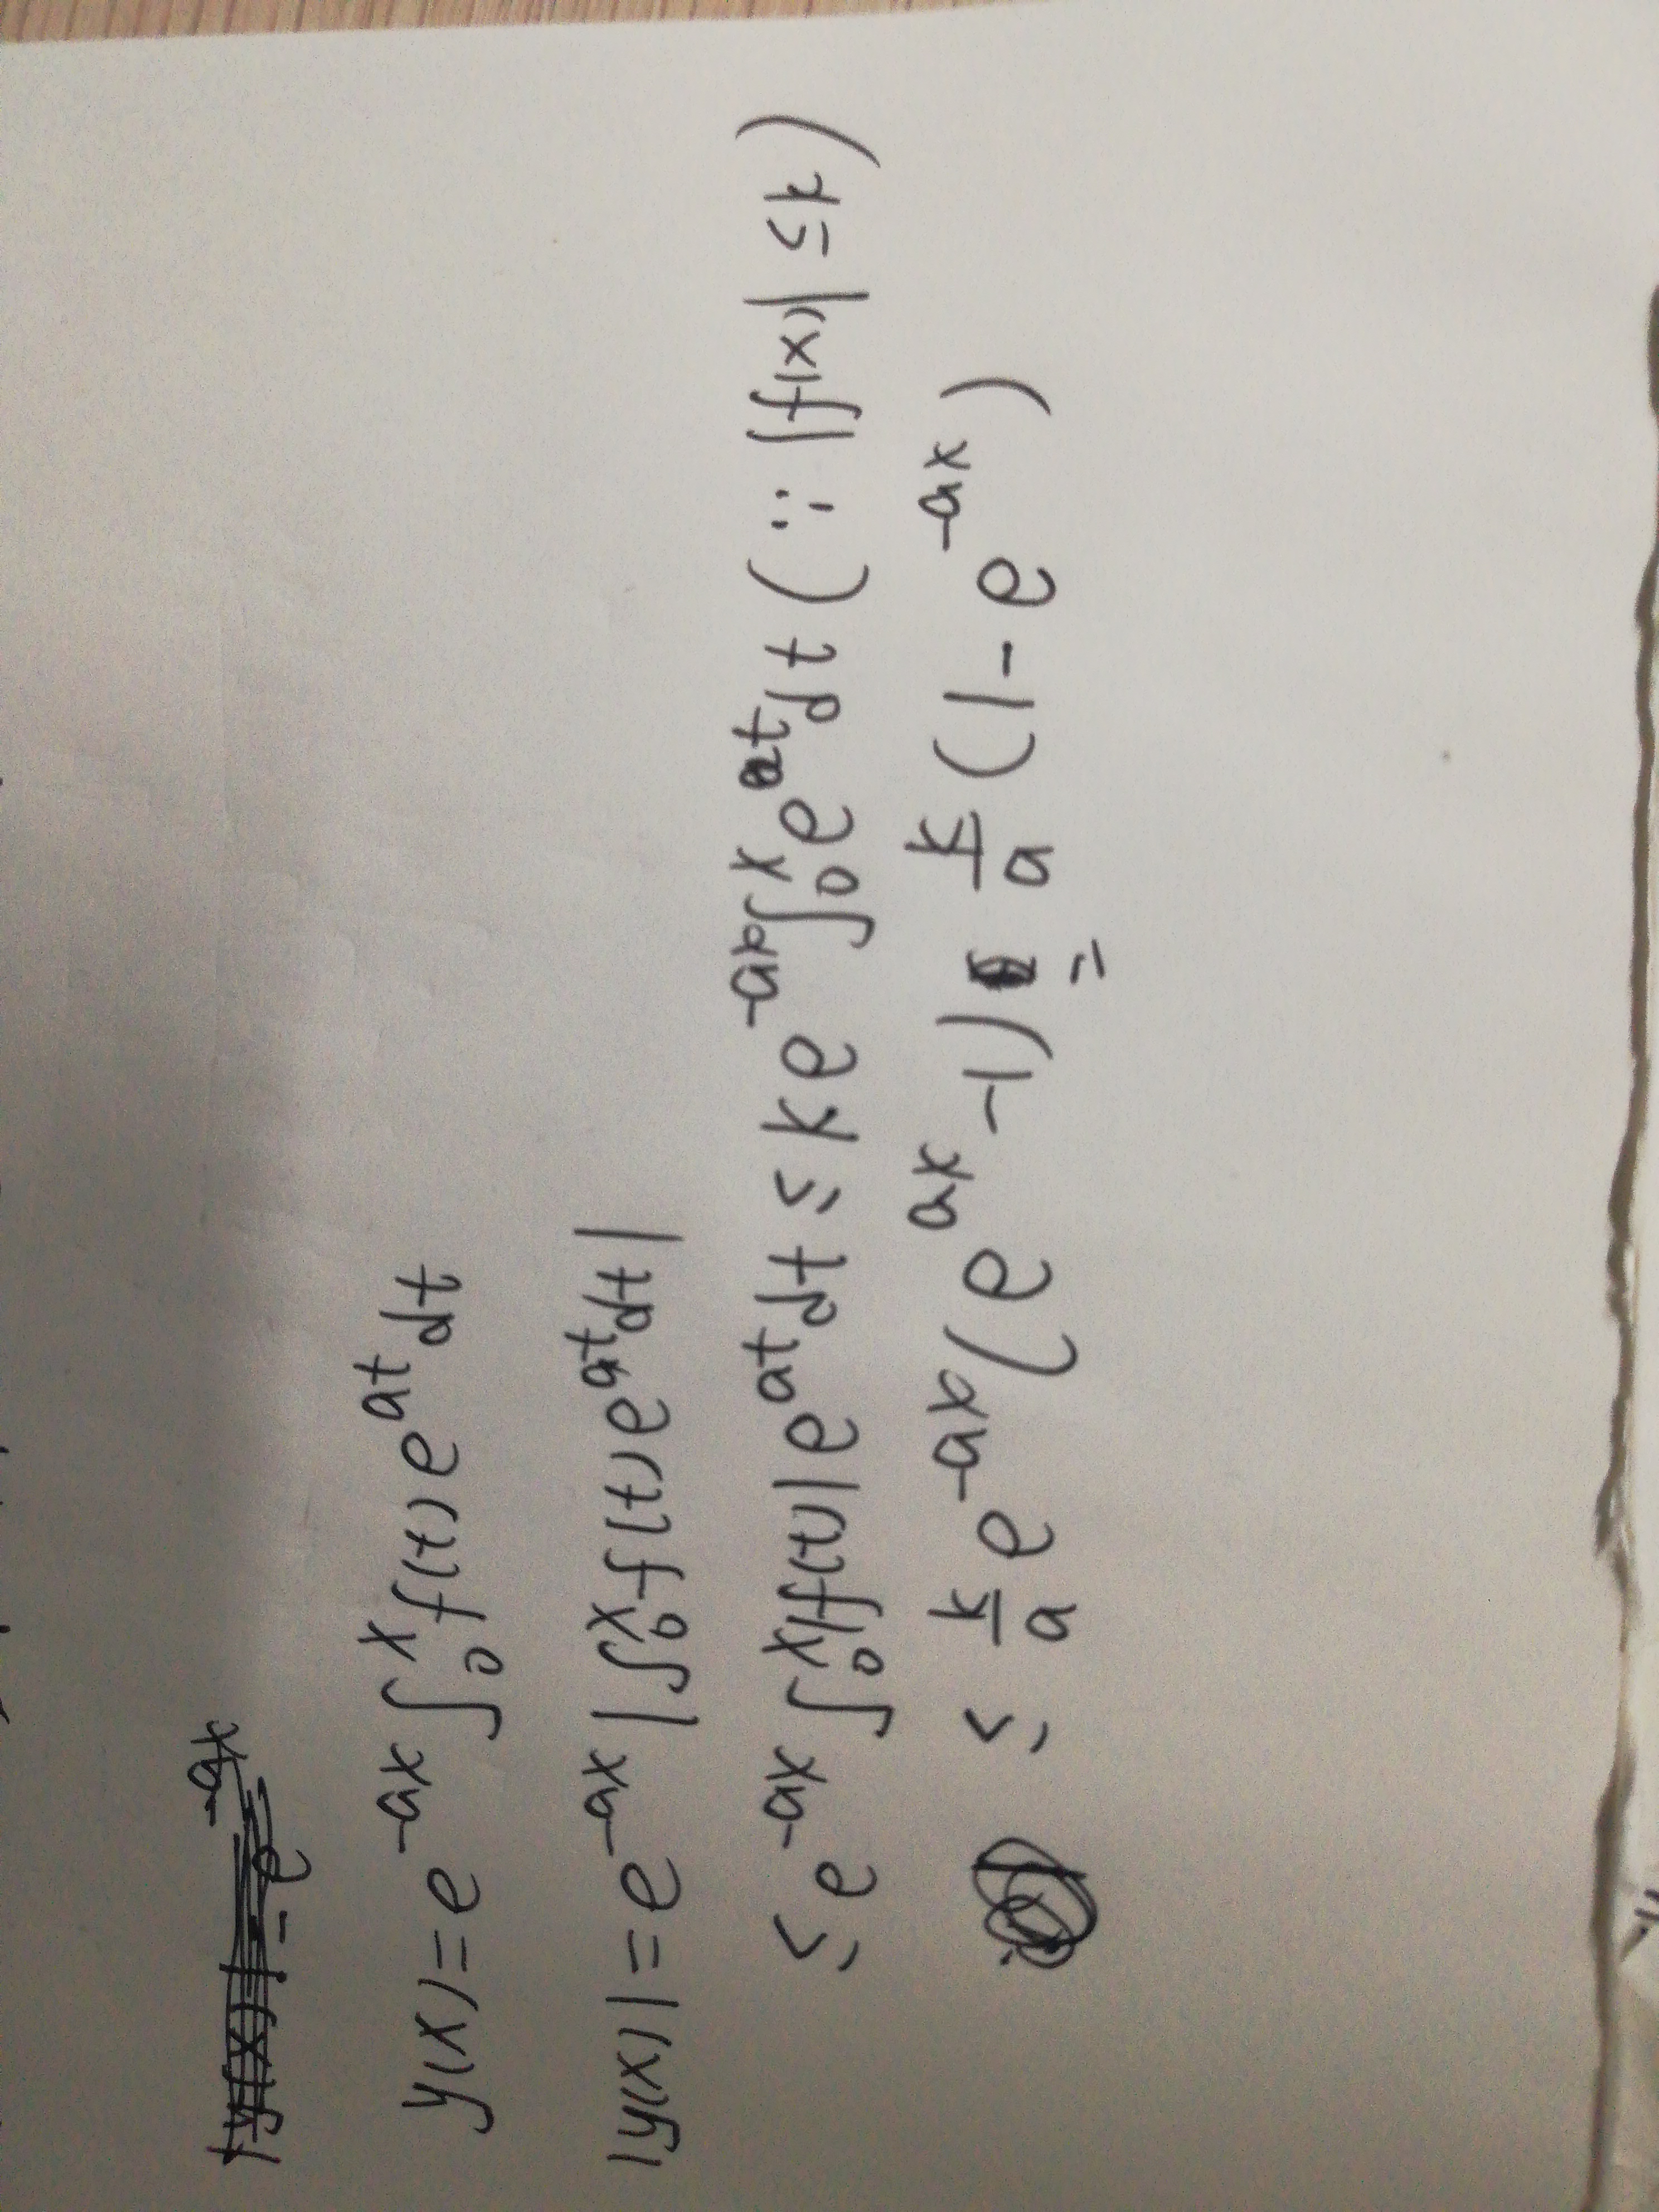 y(x)=e^{-ax}∫_0^x f(t)e^{at}dt
|y(x)|=e^{-ax}|∫_0^x f(t)e^{at}dt|
≤e^{-ax}∫_0^x|f(t)|e^{at}dt≤ke^{-ax}∫_0^x e^{at}dt(∵|f(x)|≤k)
≤\frac{k}{a}e^{-ax}(e^{ax}-1)=\frac{k}{a}(1-e^{-ax})